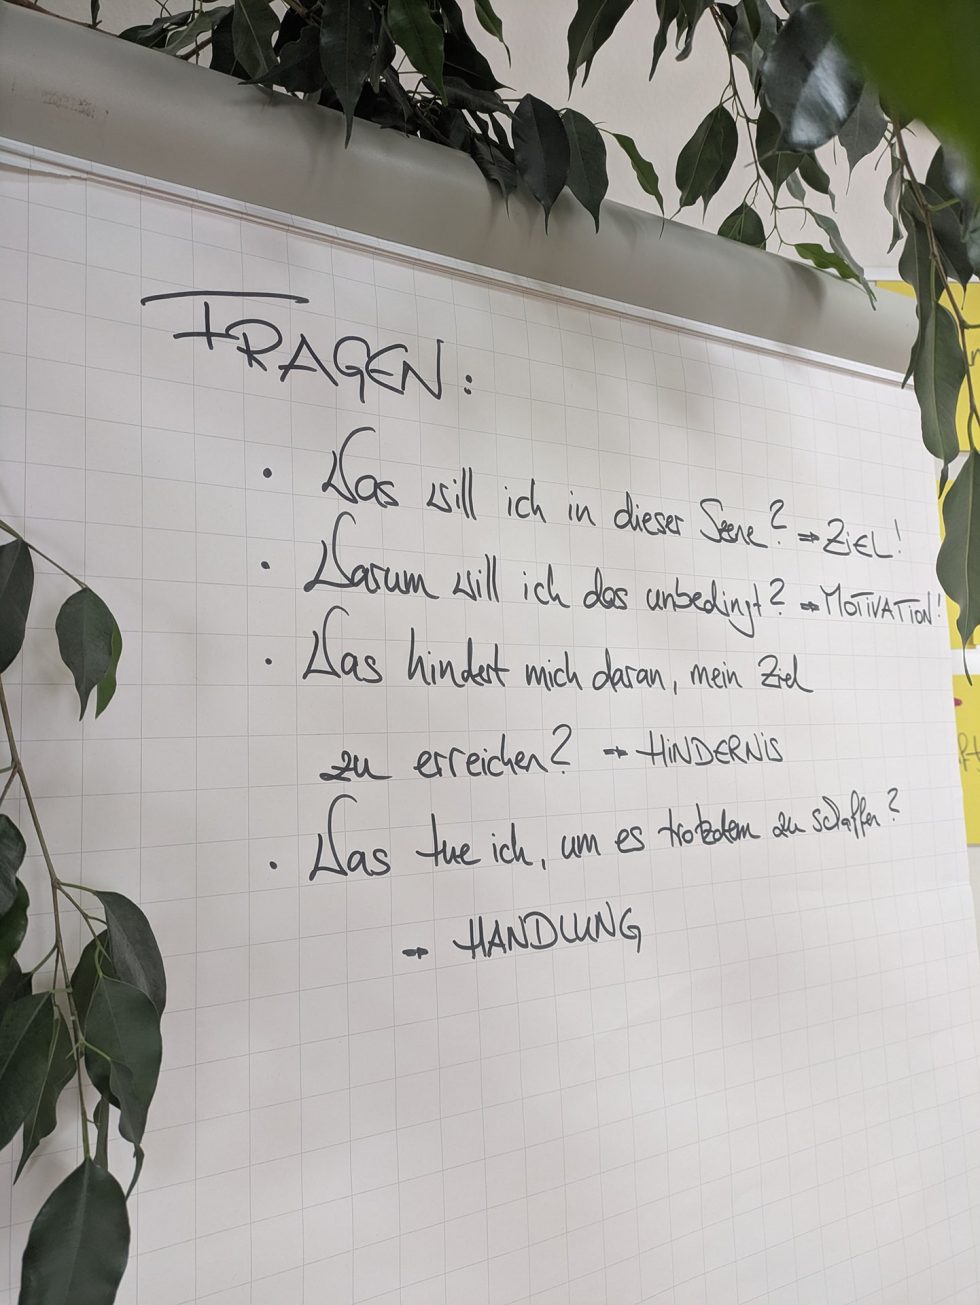 FRAGEN:
· Was will ich in dieser Szene? ⇒ ZIEL!
· Warum will ich das unbedingt? ⇒ MOTIVATION!
· Was hindert mich daran, mein Ziel
zu erreichen? ⇒ HINDERNIS
· Was tue ich, um es trotzdem zu schaffen?
⇒ HANDLUNG